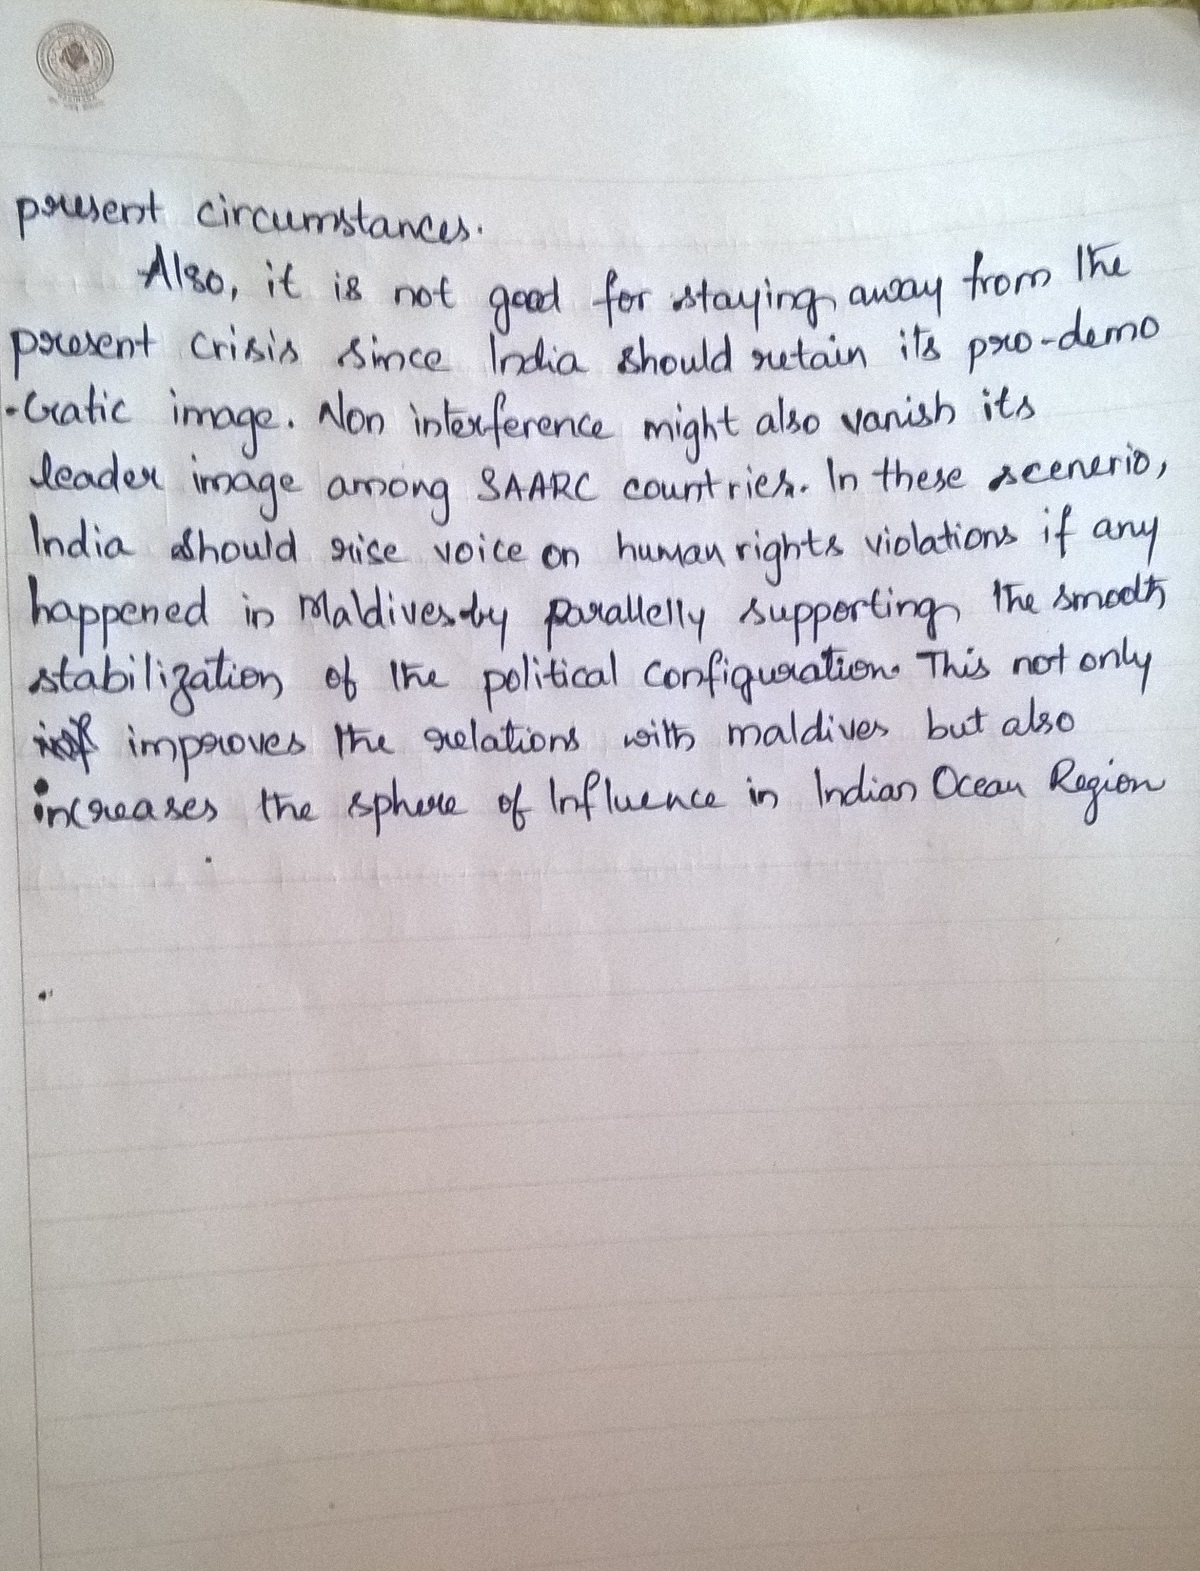 present circumstances.
Also, it is not good for staying away from the
present crisis since India should retain its pro-demo
-cratic image. Non interference might also vanish its
leader image among SAARC countries. In these scenerio,
India should rise voice on human rights violations if any
happened in Maldives by parallelly supporting the smooth
stabilization of the political configuration. This not only
improves the relations with maldives but also
increases the sphere of Influence in Indian Ocean Region
.